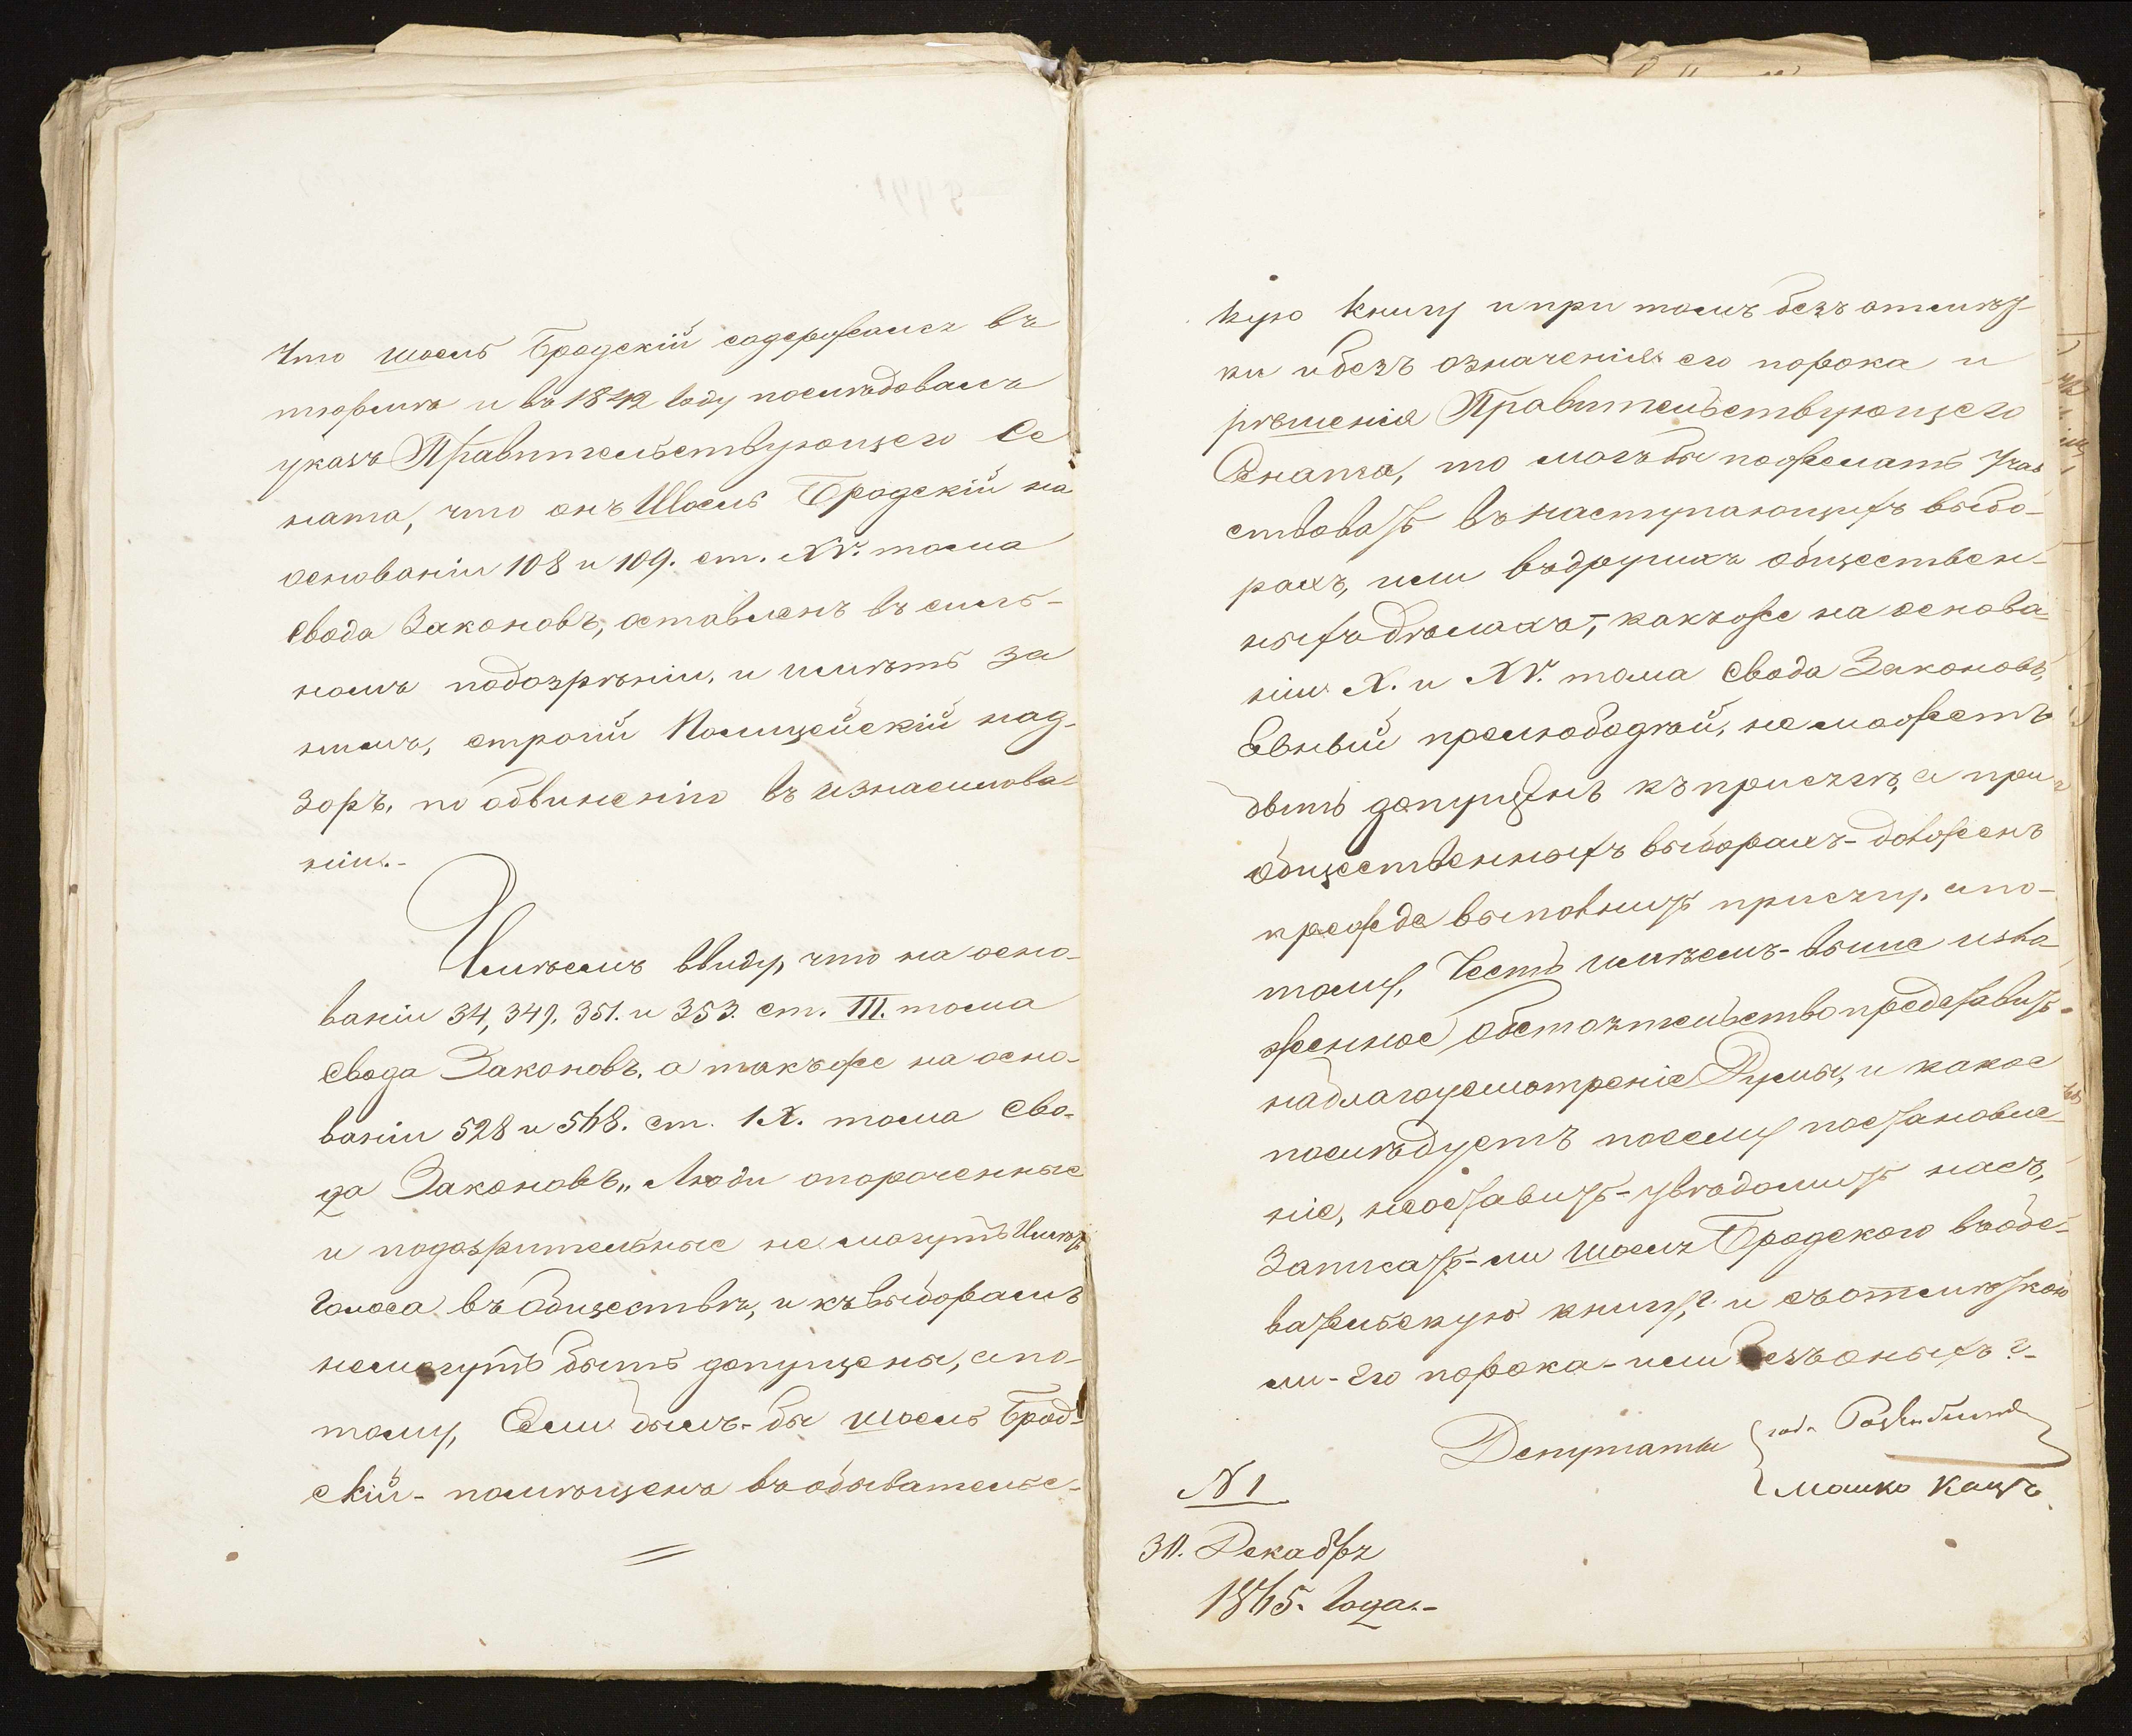 что Шоель Бродскій содержался въ
тюрьмѣ и въ 1842 году последовалъ
указъ Правительствующего Се
ната, что онъ Шоель Бродскій на
основаніи 108 и 109. ст. XV. тома
Свода Законовъ, оставленъ въ силь-
номъ подозрѣніи, и имѣть за
нимъ, строгій Полицейскій над-
зоръ, по обвиненію въ изнасилова-
ніи.-
Имѣемъ ввиду, что на осно-
ваніи 34, 349. 351. и 353. ст. III. тома
Свода Законовъ, а такъже на осно-
ваніи 528 и 568. ст. IX. тома Сво-
да Законовъ „Люди опороченные
и подозрительные не могутъ имѣть
голоса въ обществѣ, и къ выборамъ
немогутъ быть допущены, апо-
тому, Если былъ-бы Шоель Брод-
скій - помѣщенъ въ обывательс-
кую книгу и при томъ безъ отмѣт-
ки и безъ означенія его порока и
рѣшенія Правительствующего
Сената, то могъ бы пожелать Учав
ствовать въ наступающихъ выбо-
рахъ, или въ другихъ обществен-
ныхъ дѣлахъ, какъ же на основа-
ніи X. и XV. тома Свода Законовъ,
Явный прелюбодѣй, не можетъ
быть допущенъ къ присягѣ, а при
общественныхъ выборахъ - долженъ
прежде выполнить присягу, апо-
тому, Честь имѣемъ - выше изло-
женное обстоятельство представить
на благоусмотреніе Думы, и какое
последуетъ посему постановле-
ніе, неоставить - увѣдомить насъ,
Записать-ли Шоеля Бродского въ обы-
вательскую книгу,? и съ отмѣткою
ли - Его порока - или безъ оныхъ?-
Депутаты
Мошко Кацъ
N 1
30. Декабря
1865. Года.-